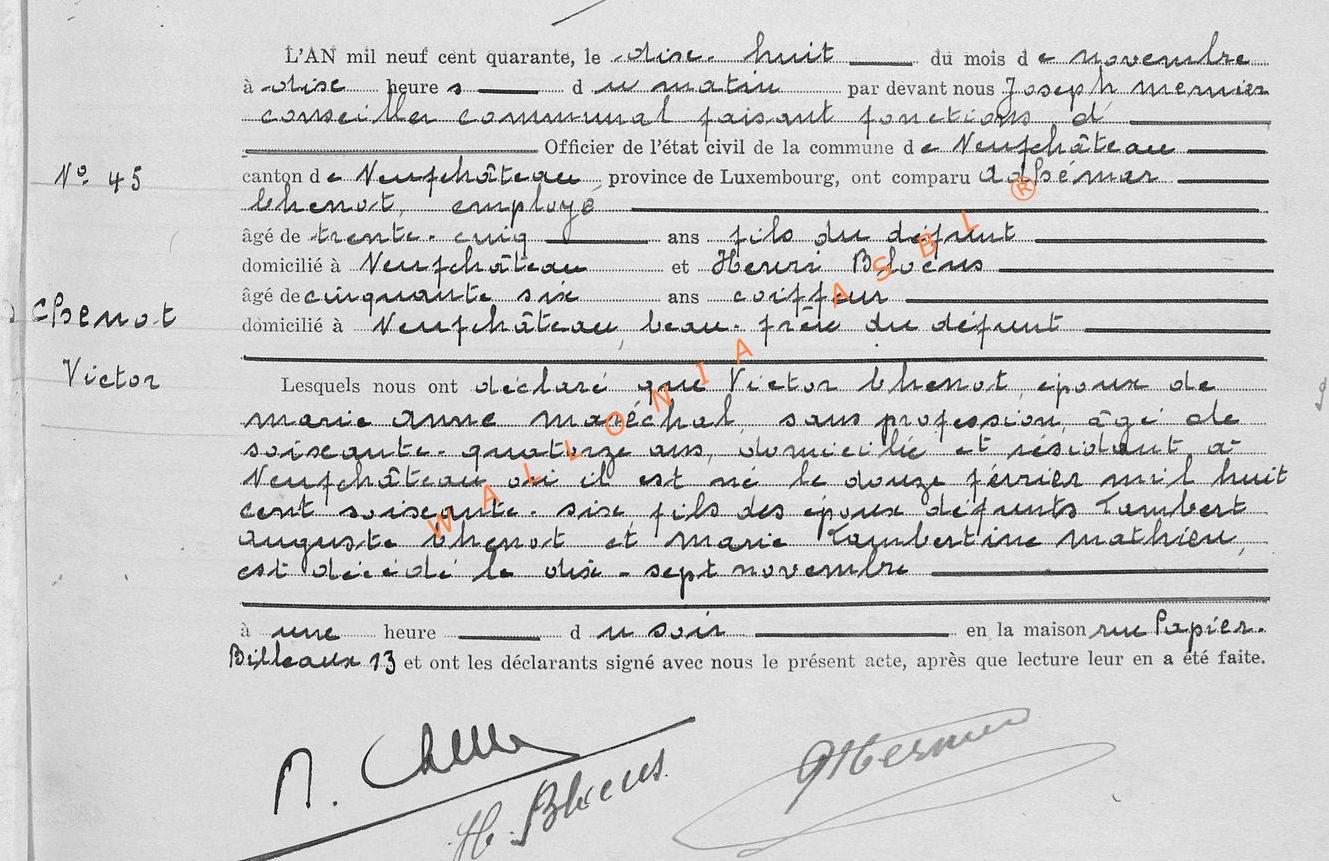 L'AN mil neuf cent quarante, le dix-huit du mois de novembre
à dix heures du matin par devant nous Joseph Mernier
conseiller communal faisant fonctions d'
Officier de l'état civil de la commune de Neufchâteau
N° 45
canton de Neufchâteau province de Luxembourg, ont comparu Adhémar
Chenot, employé
âgé de trente-cinq ans fils du défunt
domicilié à Neufchâteau et Henri Bloens
âgé de cinquante six ans coiffeur
Chenot
domicilié à Neufchâteau, beau-frère du défunt
Victor
Lesquels nous ont déclaré que Victor Chenot, époux de
Marie Anne Maréchal, sans profession, âgé de
soixante-quatorze ans, domicilié et résidant à
Neufchâteau où il est né le douze février mil huit
cent soixante-six fils des époux défunts Lambert
Auguste Chenot et Marie Lambertine Mathieu,
est décédé le dix-sept novembre
à une heure du soir en la maison rue Papier-
Billeaux 13 et ont les déclarants signé avec nous le présent acte, après que lecture leur en a été faite.
H. Bloens
JMernier
WALLONIA ASBL ®